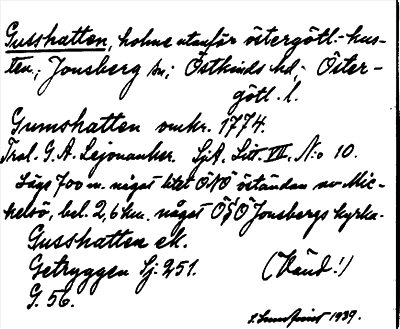 Gusshatten, holme utanför östergötl.-kus-
ten; Jonsberg sn; Östkinds hd; Öster-
götl. l.
Gumshatten omkr. 1774.
Tral. G. A. Lejonanker. SjA. Litt. VII. N:o 10.
Läge 700 m. något litet ÖNÖ öständan av Mic-
kelsö, bel. 2,6 km. något ÖSÖ Jonsbergs kyrka.
Gusshatten ek.
Getryggen Sj. 251.
G. 56.
(Vänd!)
1939.